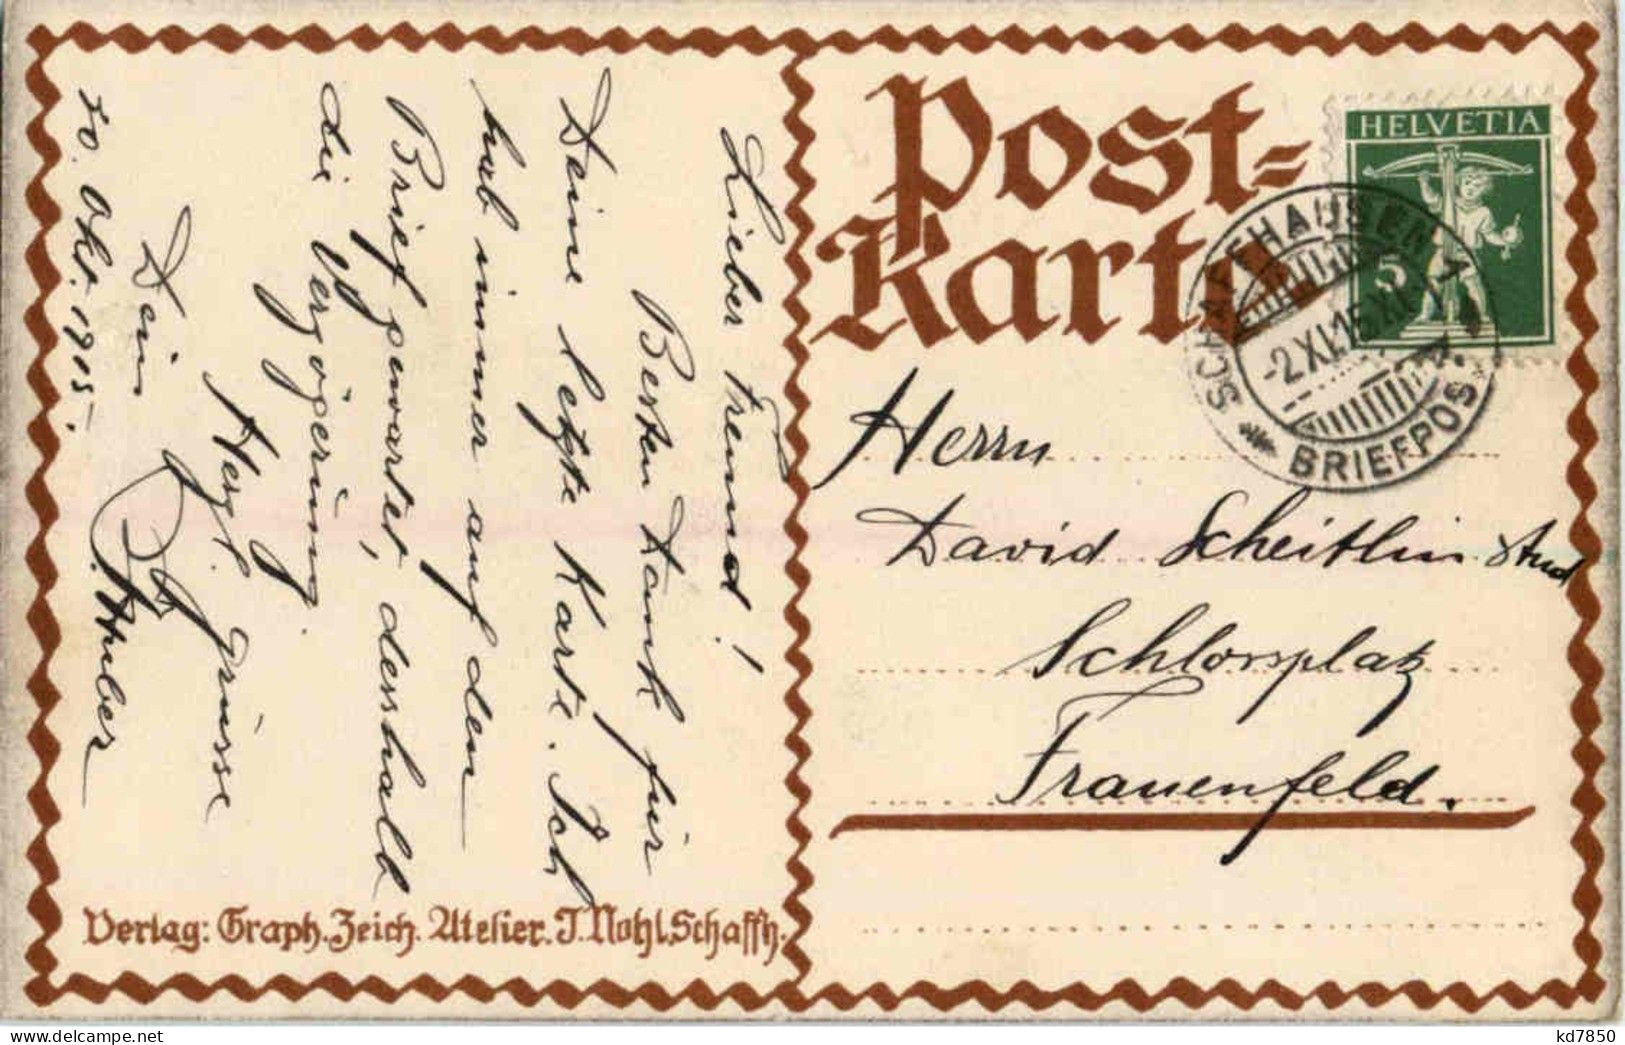 Lieber Freund!
Besten Dank für
Deine letzte Karte. Ich
hab immer auf den
Brief gewartet, desshalb
die Vergögerung.
Herzl. grüsse
Dein
A. Huber
30. Okt. 1915.
Verlag: Graph. Zeich. Atelier. J. Nohl, Schaffh.
Post-
Karte
HELVETIA
5
SCHAFFHAUSEN 1
-2.XI.15.XI-
BRIEFPOST
Herrn
David Scheitlin stud
Schlossplatz
Frauenfeld.
kd7850